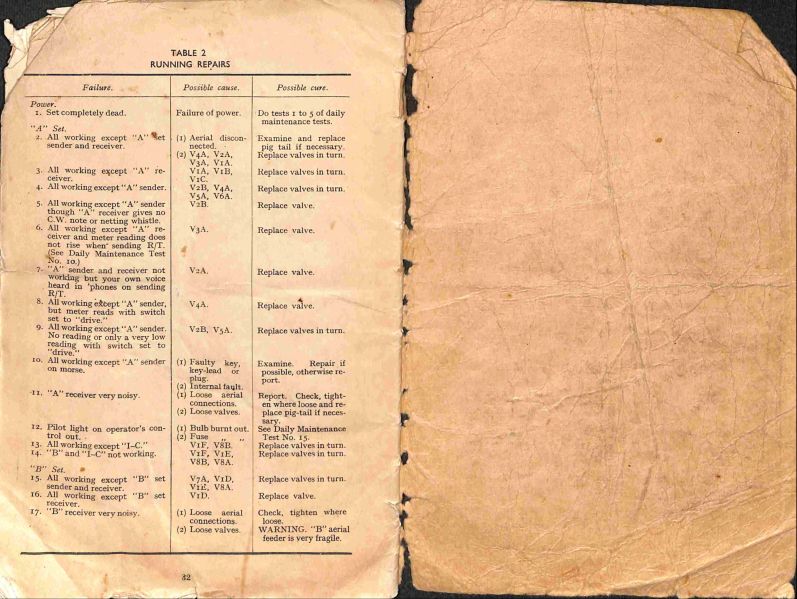 TABLE 2
RUNNING REPAIRS
Failure. Possible cause. Possible cure.
Power.
1. Set completely dead. Failure of power. Do tests 1 to 5 of daily
maintenance tests.
"A" Set.
2. All working except "A" set (1) Aerial discon- Examine and replace
sender and receiver. nected. pig tail if necessary.
(2) V4A, V2A, Replace valves in turn.
V3A, V1A.
3. All working except "A" re- V1A, V1B, Replace valves in turn.
ceiver. V1C.
4. All working except "A" sender. V2B, V4A, Replace valves in turn.
V5A, V6A.
5. All working except "A" sender V2B. Replace valve.
though "A" receiver gives no
C.W. note or netting whistle.
6. All working except "A" re- V3A. Replace valve.
ceiver and meter reading does
not rise when sending R/T.
(See Daily Maintenance Test
No. 10.)
7. "A" sender and receiver not V2A. Replace valve.
working but your own voice
heard in 'phones on sending
R/T.
8. All working except "A" sender, V4A. Replace valve.
but meter reads with switch
set to "drive."
9. All working except "A" sender. V2B, V5A. Replace valves in turn.
No reading or only a very low
reading with switch set to
"drive."
10. All working except "A" sender (1) Faulty key, Examine. Repair if
on morse. key-lead or possible, otherwise re-
plug. port.
(2) Internal fault.
11. "A" receiver very noisy. (1) Loose aerial Report. Check, tight-
connections. en where loose and re-
(2) Loose valves. place pig-tail if neces-
sary.
12. Pilot light on operator's con- (1) Bulb burnt out. See Daily Maintenance
trol out. (2) Fuse " " Test No. 15.
13. All working except "I-C." V1F, V8B. Replace valves in turn.
14. "B" and "I-C" not working. V1F, V1E, Replace valves in turn.
V8B, V8A.
"B" Set.
15. All working except "B" set V7A, V1D, Replace valves in turn.
sender and receiver. V1E, V8A.
16. All working except "B" set V1D. Replace valve.
receiver.
17. "B" receiver very noisy. (1) Loose aerial Check, tighten where
connections. loose.
(2) Loose valves. WARNING. "B" aerial
feeder is very fragile.
32